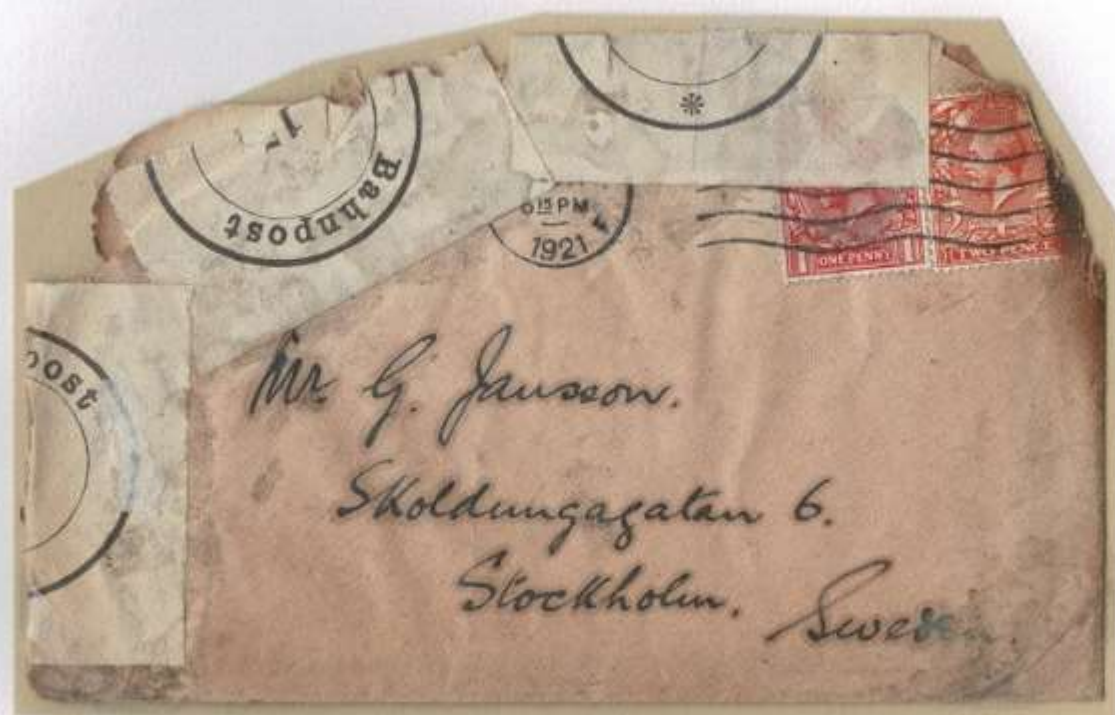 Bahnpost
post
6 15 PM
1921
ONE PENNY
1
1
TWO PENCE
2
Mr G. Jansson.
Skoldungagatan 6.
Stockholm.
Sweden.